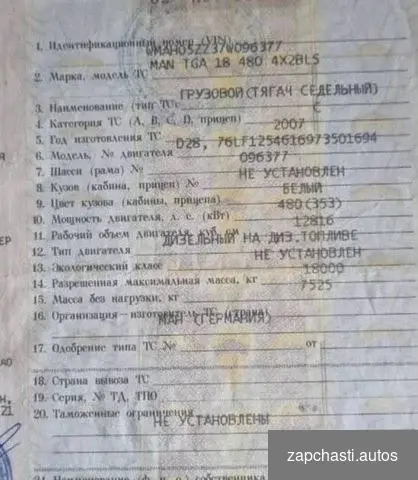 1. Идентификационный номер (VIN) WMAH05ZZ37W096377
MAN TGA 18 480 4X2BLS
2. Марка, модель ТС
ГРУЗОВОЙ(ТЯГАЧ СЕДЕЛЬНЫЙ)
3. Наименование (тип ТС)
C
4. Категория ТС (A, B, C, D, прицеп)
2007
5. Год изготовления ТС
D28, 76LF1254616973501694
6. Модель, № двигателя
096377
7. Шасси (рама) №
НЕ УСТАНОВЛЕН
8. Кузов (кабина, прицеп) №
БЕЛЫЙ
9. Цвет кузова (кабины, прицепа)
480(353)
10. Мощность двигателя, л. с. (кВт)
12816
11. Рабочий объем двигателя, куб. см
ДИЗЕЛЬНЫЙ НА ДИЗ.ТОПЛИВЕ
12. Тип двигателя
НЕ УСТАНОВЛЕН
13. Экологический класс
18000
14. Разрешенная максимальная масса, кг
7525
15. Масса без нагрузки, кг
16. Организация-изготовитель ТС (страна)
МАН (ГЕРМАНИЯ)
17. Одобрение типа ТС № от
18. Страна вывоза ТС
19. Серия, № ТД, ТПО
20. Таможенные ограничения
НЕ УСТАНОВЛЕНЫ
21. Наименование (ф. и. о.) собственника
zapchasti.autos